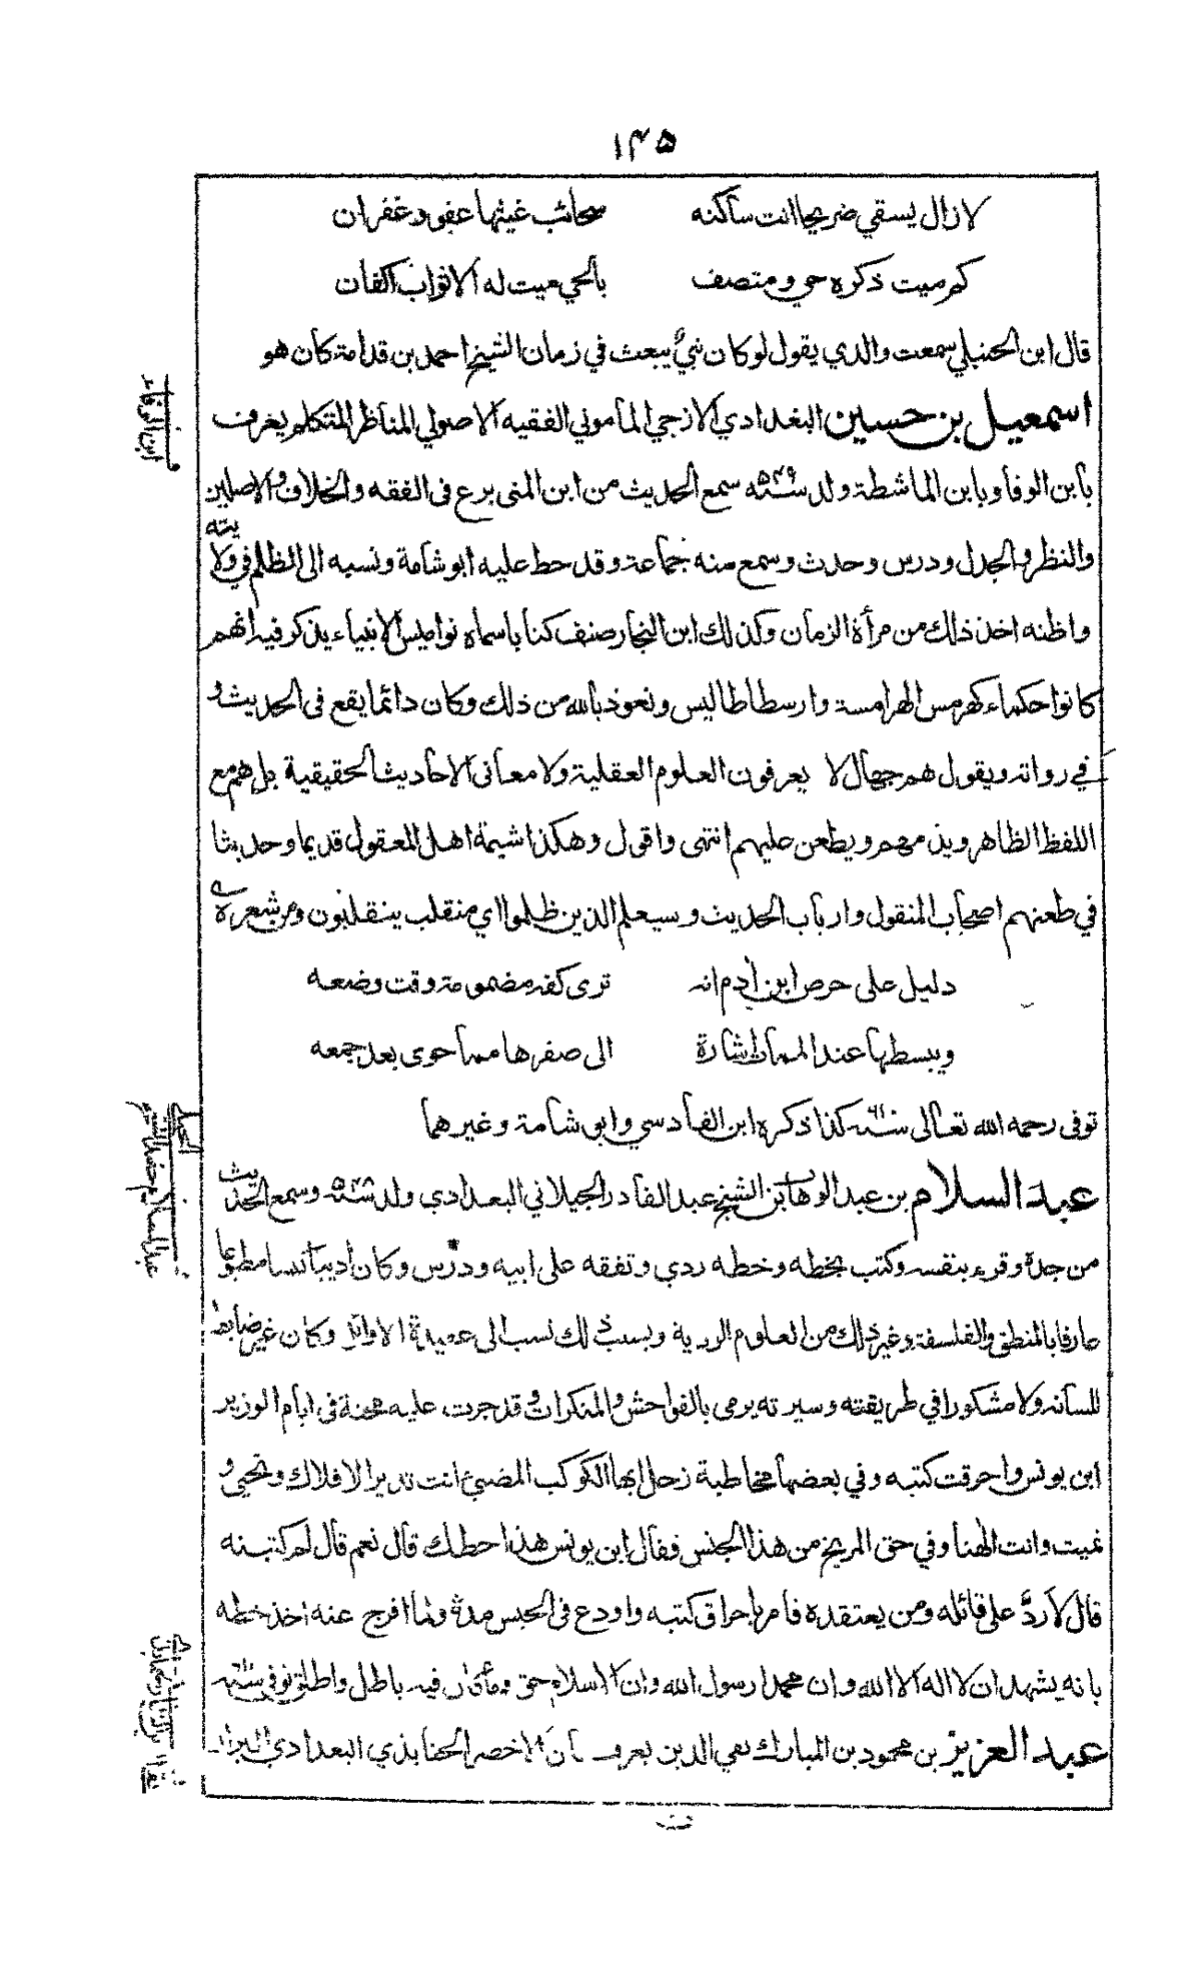 ١٣٥
لازال يسقي ضريحا انت ساكنه سحائب غيثها عفو وغفران
كم ميت ذكره حي ومتصف بالحي ميت له الاثواب اكفان
قال ابن الحنبلي سمعت والدي يقول لو كان نبيٌّ يبعث في زمان الشيخ احمد بن قدامة كان هو
اسمعيل بن حسين البغدادي الازجي المأموني الفقيه الاصولي المناظر المتكلم يعرف
بابن الوفا وبابن الماشطة ولد سنة ٥٤٩ سمع الحديث من ابن المنى برع فى الفقه والخلاف والاصلين
والنظر والجدل ودرس وحدث وسمع منه جماعة وقد حط عليه ابو شامة ونسبه الى الظلم في ولايته
واظنه اخذ ذلك من مرأة الزمان وكذلك ابن النجار صنف كتابا سماه نواميس الانبياء يذكر فيه انهم
كانوا حكماء كهرمس الهرامسة وارسطاطاليس ونعوذ بالله من ذلك وكان دائما يقع فى الحديث و
في رواته ويقول هم جهال لا يعرفون العلوم العقلية ولا معانى الاحاديث الحقيقية بل هم مع
اللفظ الظاهر ويذمهم ويطعن عليهم انتهى واقول وهكذا شيمة اهل المعقول قديما وحديثا
في طعنهم اصحاب المنقول وارباب الحديث وسيعلم الذين ظلموا اي منقلب ينقلبون ومن شعره
دليل على حرص ابن أدم انه ترى كفه مضمومة وقت وضعه
ويبسطها عند الممات اشارة الى صفرها مما حوى بعد جمعه
توفى رحمه الله تعالى سنة كذا ذكره ابن القادسي وابو شامة وغيرهما
عبد السلام بن عبد الوهاب بن الشيخ عبد القادر الجيلاني البغدادي ولد سنة ٥٤٨ وسمع الحديث
من جده وقرء بنفسه وكتب بخطه وخطه ردي وتفقه على ابيه ودرّس وكان أديبا كيسا مطبوعا
عارفا بالمنطق والفلسفة وغير ذلك من العلوم الردية وبسبب ذلك نسب الى عقيدة الاوائل وكان غير ضابط
للسانه ولا مشكورا في طريقته وسيرته يرمى بالفواحش والمنكرات وقد جرت عليه محنة فى ايام الوزير
ابن يونس واحرقت كتبه وفي بعضها مخاطبة زحل ايها الكوكب المضيئ انت تدبر الافلاك وتحيي و
تميت وانت الهنا وفي حق المريخ من هذا الجنس فقال ابن يونس هذا خطك قال نعم قال لم كتبته
قال لأردّ على قائله ومن يعتقده فامر باحراق كتبه واودع فى الحبس مدة ولما افرج عنه اخذ خطه
بانه يشهد ان لا اله الا الله وان محمدا رسول الله وان الاسلام حق وما كان فيه باطل واطلق توفي سنة
عبد العزيز بن محمود بن المبارك تقي الدين يعرف بابن الاخضر الجنابذي البغدادي البزاز
ابن الوفاء
عبد السلام حفيد الشيخ الجيلي